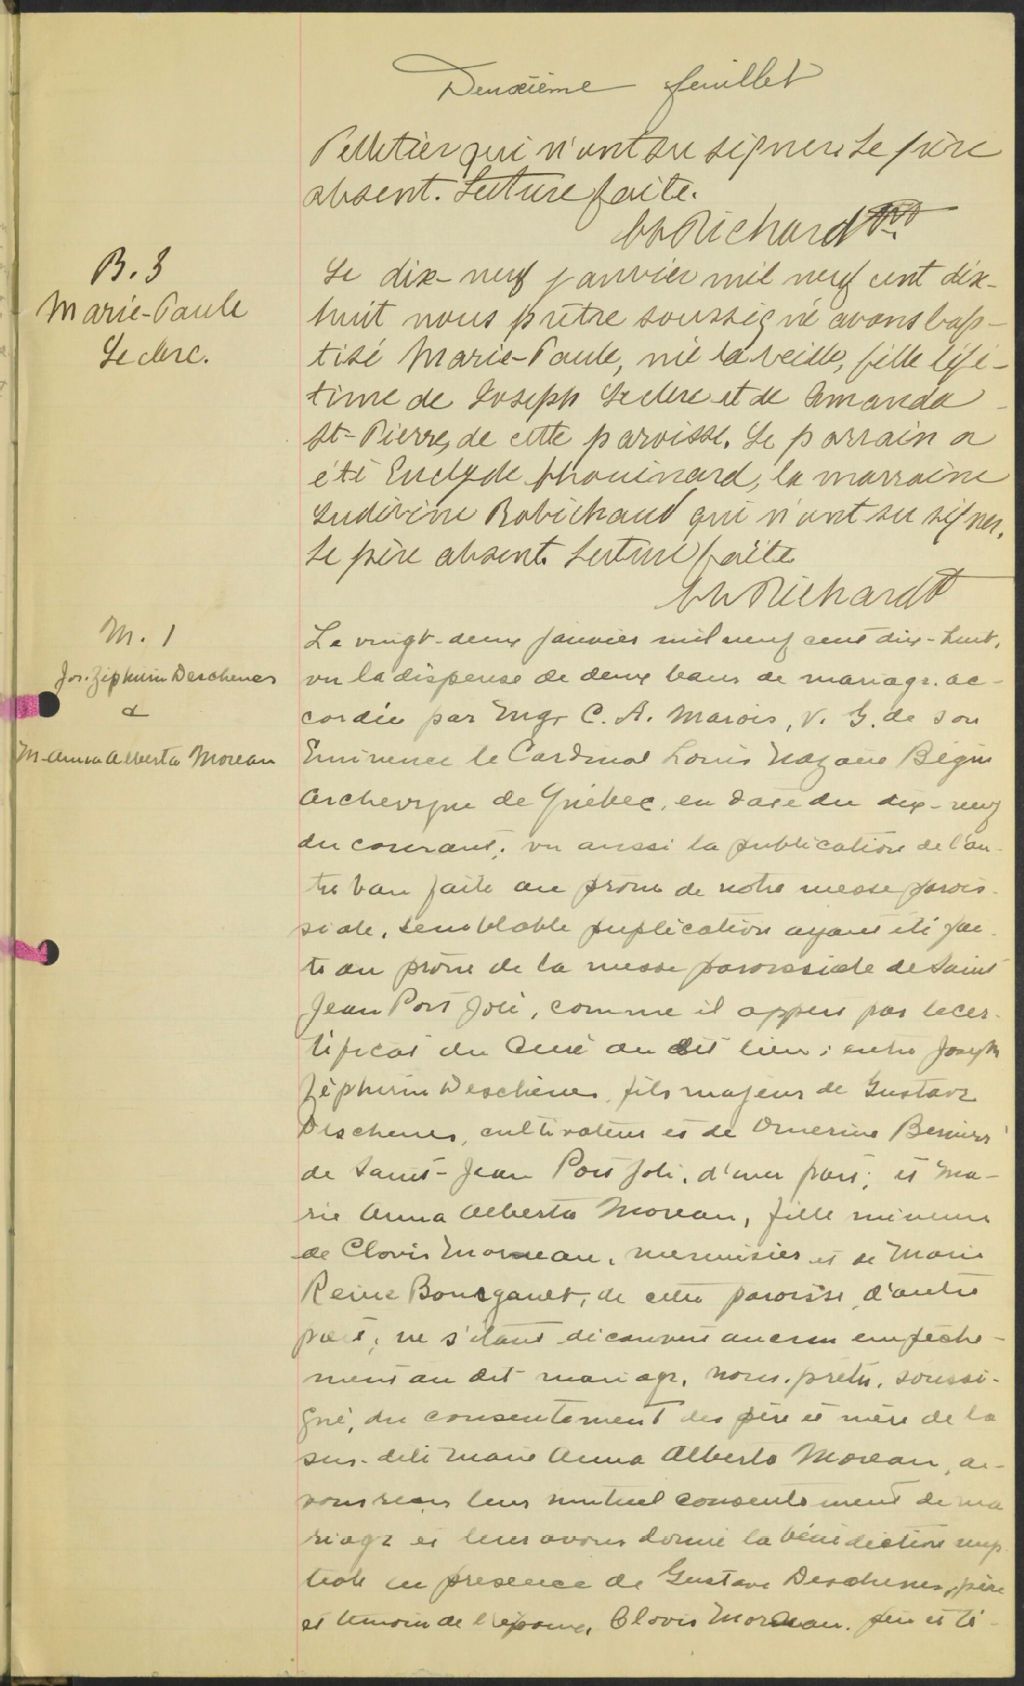 Deuxième feuillet
Pelletier qui n'ont su signer. Le père
absent. Lecture faite.
Richard Ptre
B. 3
Marie-Paule
Leclerc.
Le dix-neuf janvier mil neuf cent dix-
huit nous prêtre soussigné avons bap-
tisé Marie-Paule, née la veille, fille légi-
time de Joseph Leclerc et de Amanda
St-Pierre, de cette paroisse. Le parrain a
été Euclyde Chouinard, la marraine
Ludivine Robichaud qui n'ont su signer.
Le père absent. Lecture faite.
Richard
M. 1
Jos. Zéphirin Deschenes
&
M-Anna Alberta Moreau
Le vingt-deux janvier mil neuf cent dix-huit,
vu la dispense de deux bans de mariage ac-
cordée par Mgr C. A. Marois, V. G. de Son
Eminence le Cardinal Louis Nazaire Bégin
Archevêque de Québec, en date du dix-neuf
du courant; vu aussi la publication de l'au-
tre ban faite au prône de notre messe parois-
siale, semblable publication ayant été fai-
te au prône de la messe paroissiale de Saint
Jean Port Joli, comme il appert par le cer-
tificat du Curé au dit lieu; entre Joseph
Zéphirin Deschènes, fils majeur de Gustave
Deschenes, cultivateur et de Omerine Bernier
de Saint-Jean Port Joli, d'une part; et Ma-
rie Anna Alberta Moreau, fille mineure
de Clovis Moreau, menuisier et de Marie
Reine Bourgault, de cette paroisse, d'autre
part; ne s'étant découvert aucun empêche-
ment au dit mariage, nous, prêtre, soussi-
gné, du consentement des père et mère de la
sus-dite Marie Anna Alberta Moreau, a-
vons reçu leur mutuel consentement de ma
riage et leur avons donné la bénédiction nup
tiale en présence de Gustave Deschenes, père
et témoin de l'époux, Clovis Moreau, père et té-